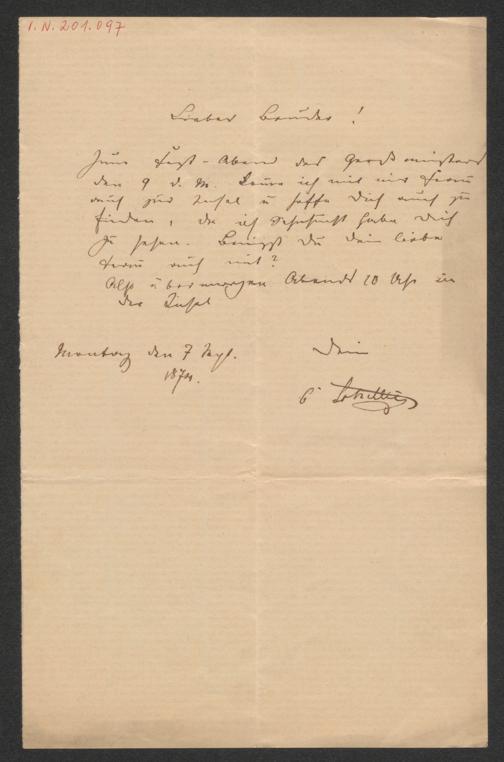 I. N. 201.097
Lieber Bruder!
Zum Fest-Abend des Großministers
den 9 d. M. komme ich mit mir Frau
auch zur Insel u hoffe Dich auch zu
finden, da ich Sehnsucht habe Dich
zu sehen. Bringst Du Dein liebe
Frau auch mit?
Also übermorgen Abends 10 Uhr in
der Insel
Montag den 7 Sept.
187
Dein
C